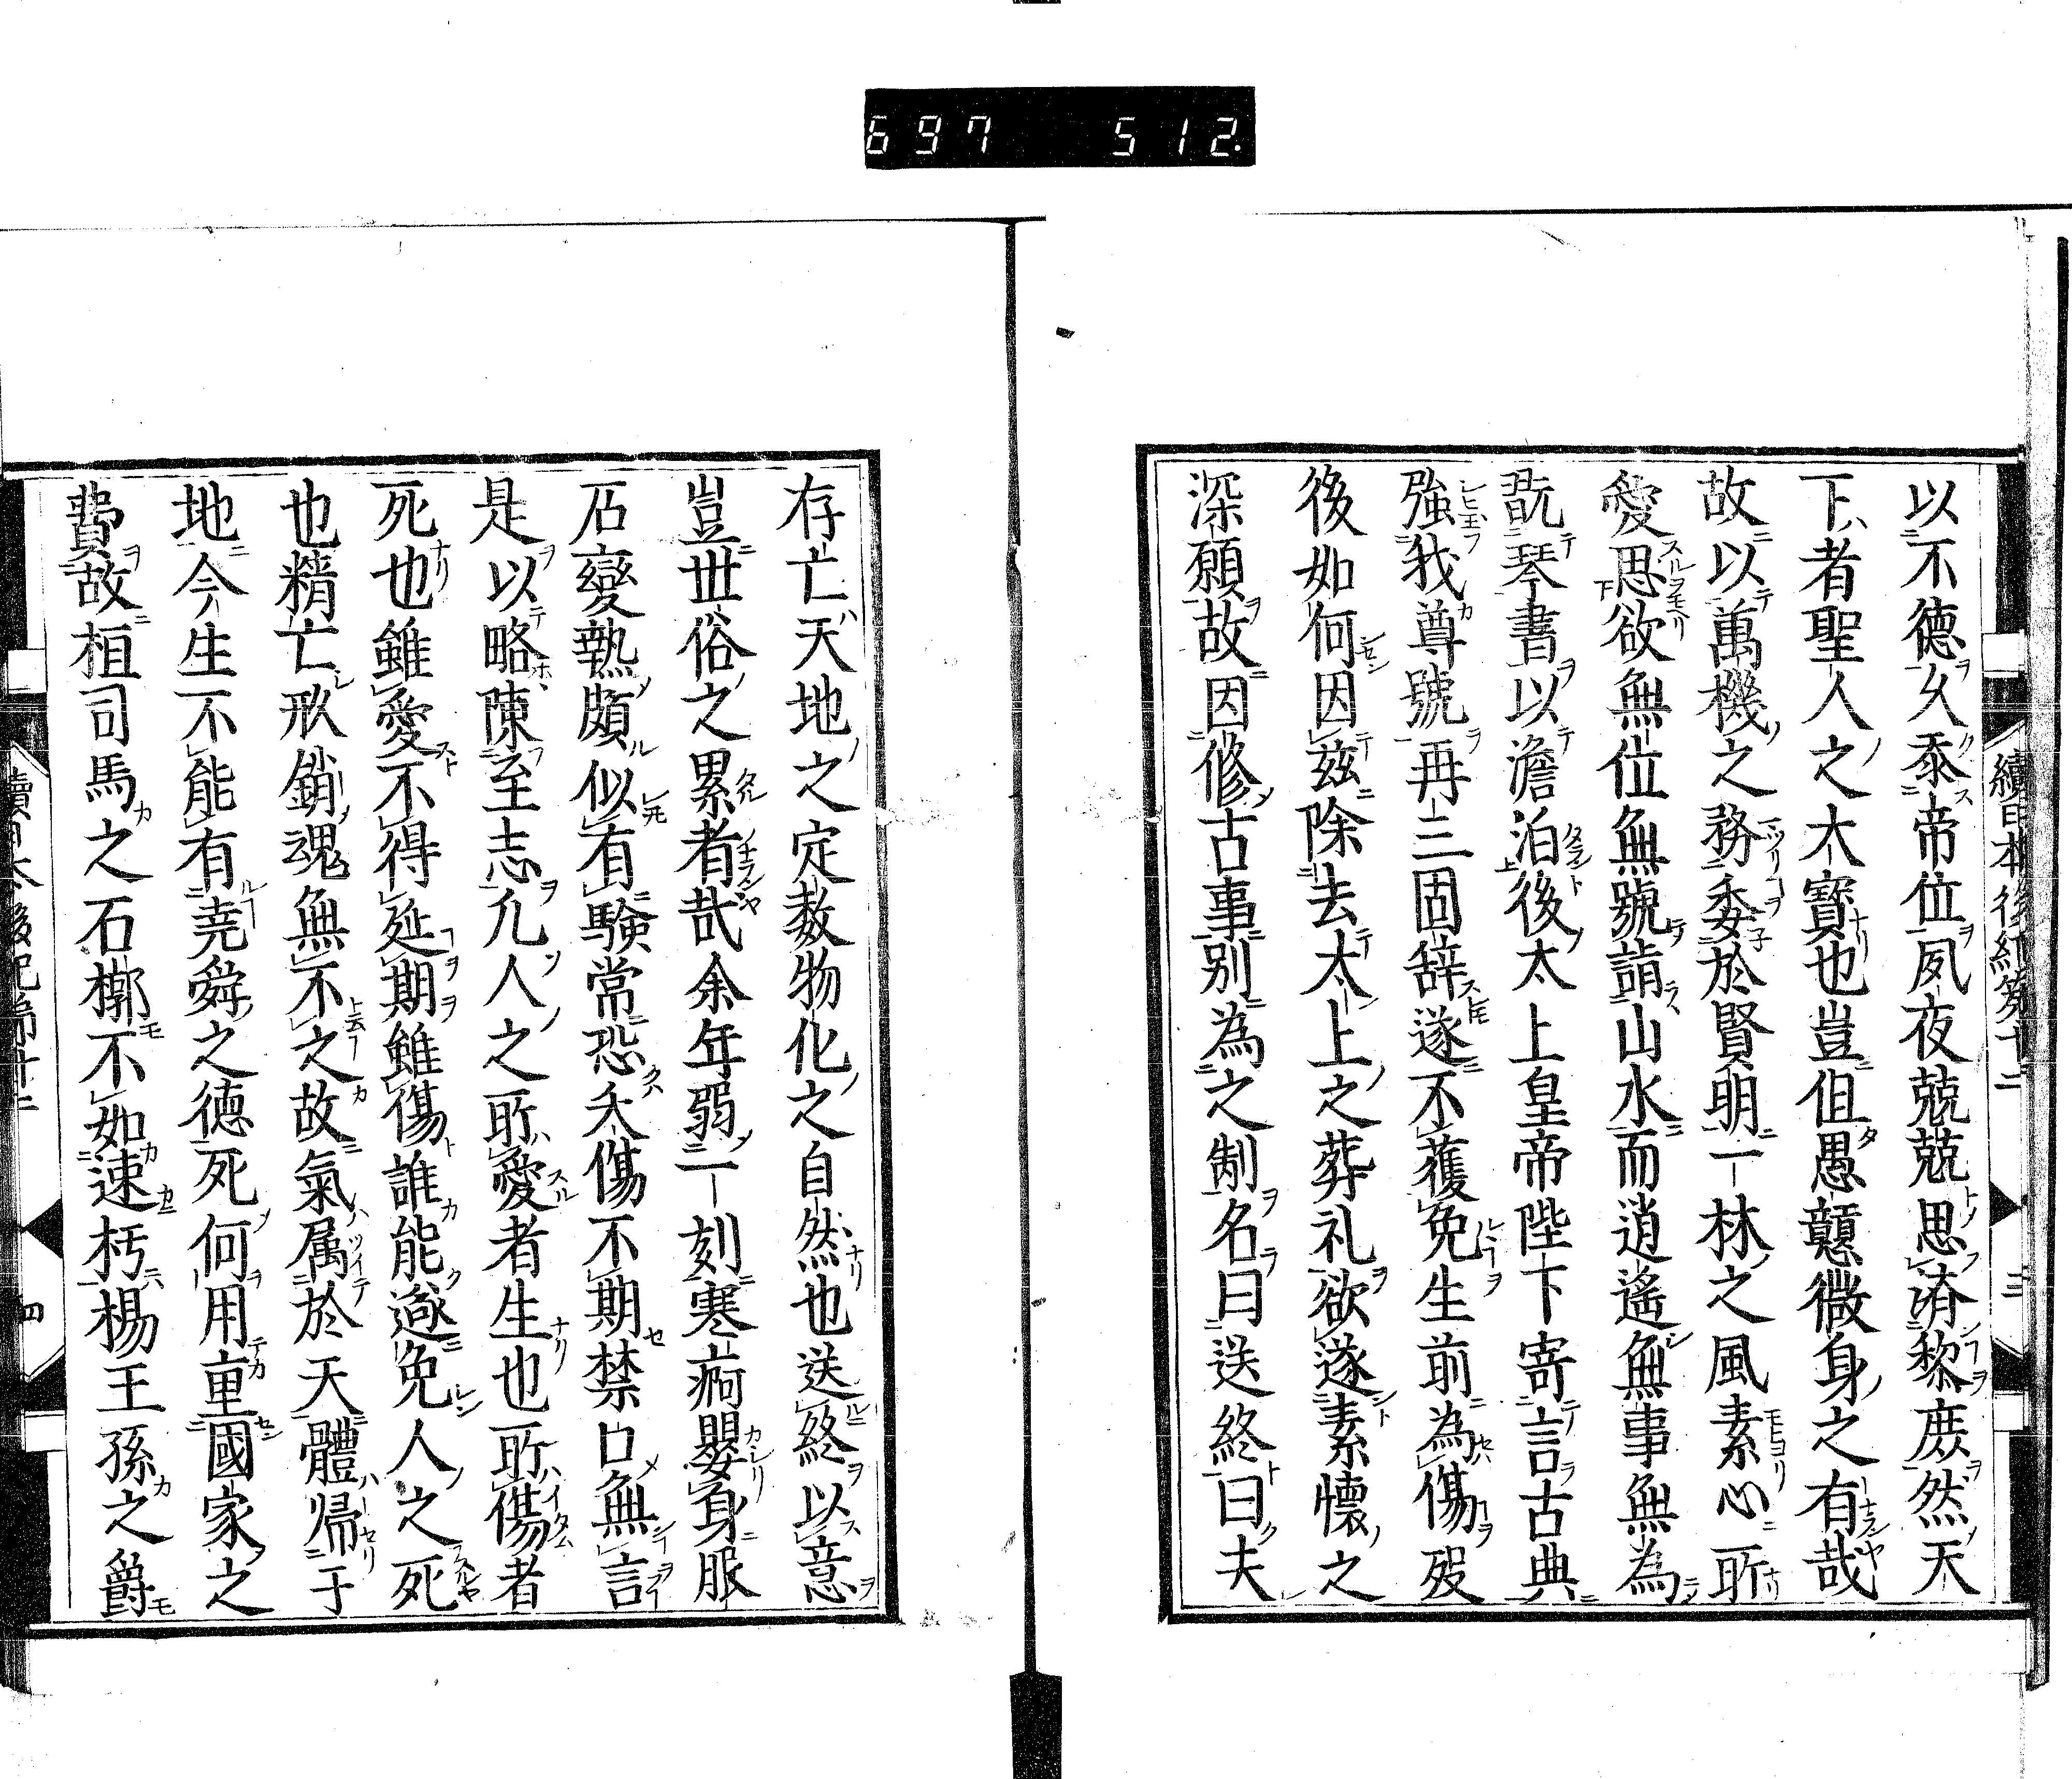 697 512.
續日本後紀第十二 三
以不德久忝帝位夙夜兢兢思濟黎庶然天
下者聖人之大寶也豈但愚戇微身之有哉
故以萬機之務委於賢明一林之風素心所
愛思欲無位無號詣山水而逍遙無事無為
翫琴書以澹泊後太上皇帝陛下寄言古典
強我尊號再三固辞遂不獲免生前為傷歿
後如何因茲除去太上之葬礼欲遂素懷之
深願故因修古事别為之制名曰送終曰夫
存亡天地之定数物化之自然也送終以意
豈世俗之累者哉余年弱一刻寒痾嬰身服
石變熱頗似有験常恐夭傷不期禁口無言
是以略陳至志凡人之所愛者生也所傷者
死也雖愛不得延期雖傷誰能遂免人之死
也精亡形銷魂無不之故氣属於天體帰于
地今生不能有堯舜之德死何用重國家之
費故桓司馬之石槨不如速朽楊王孫之爵
續日本後紀第十二 四